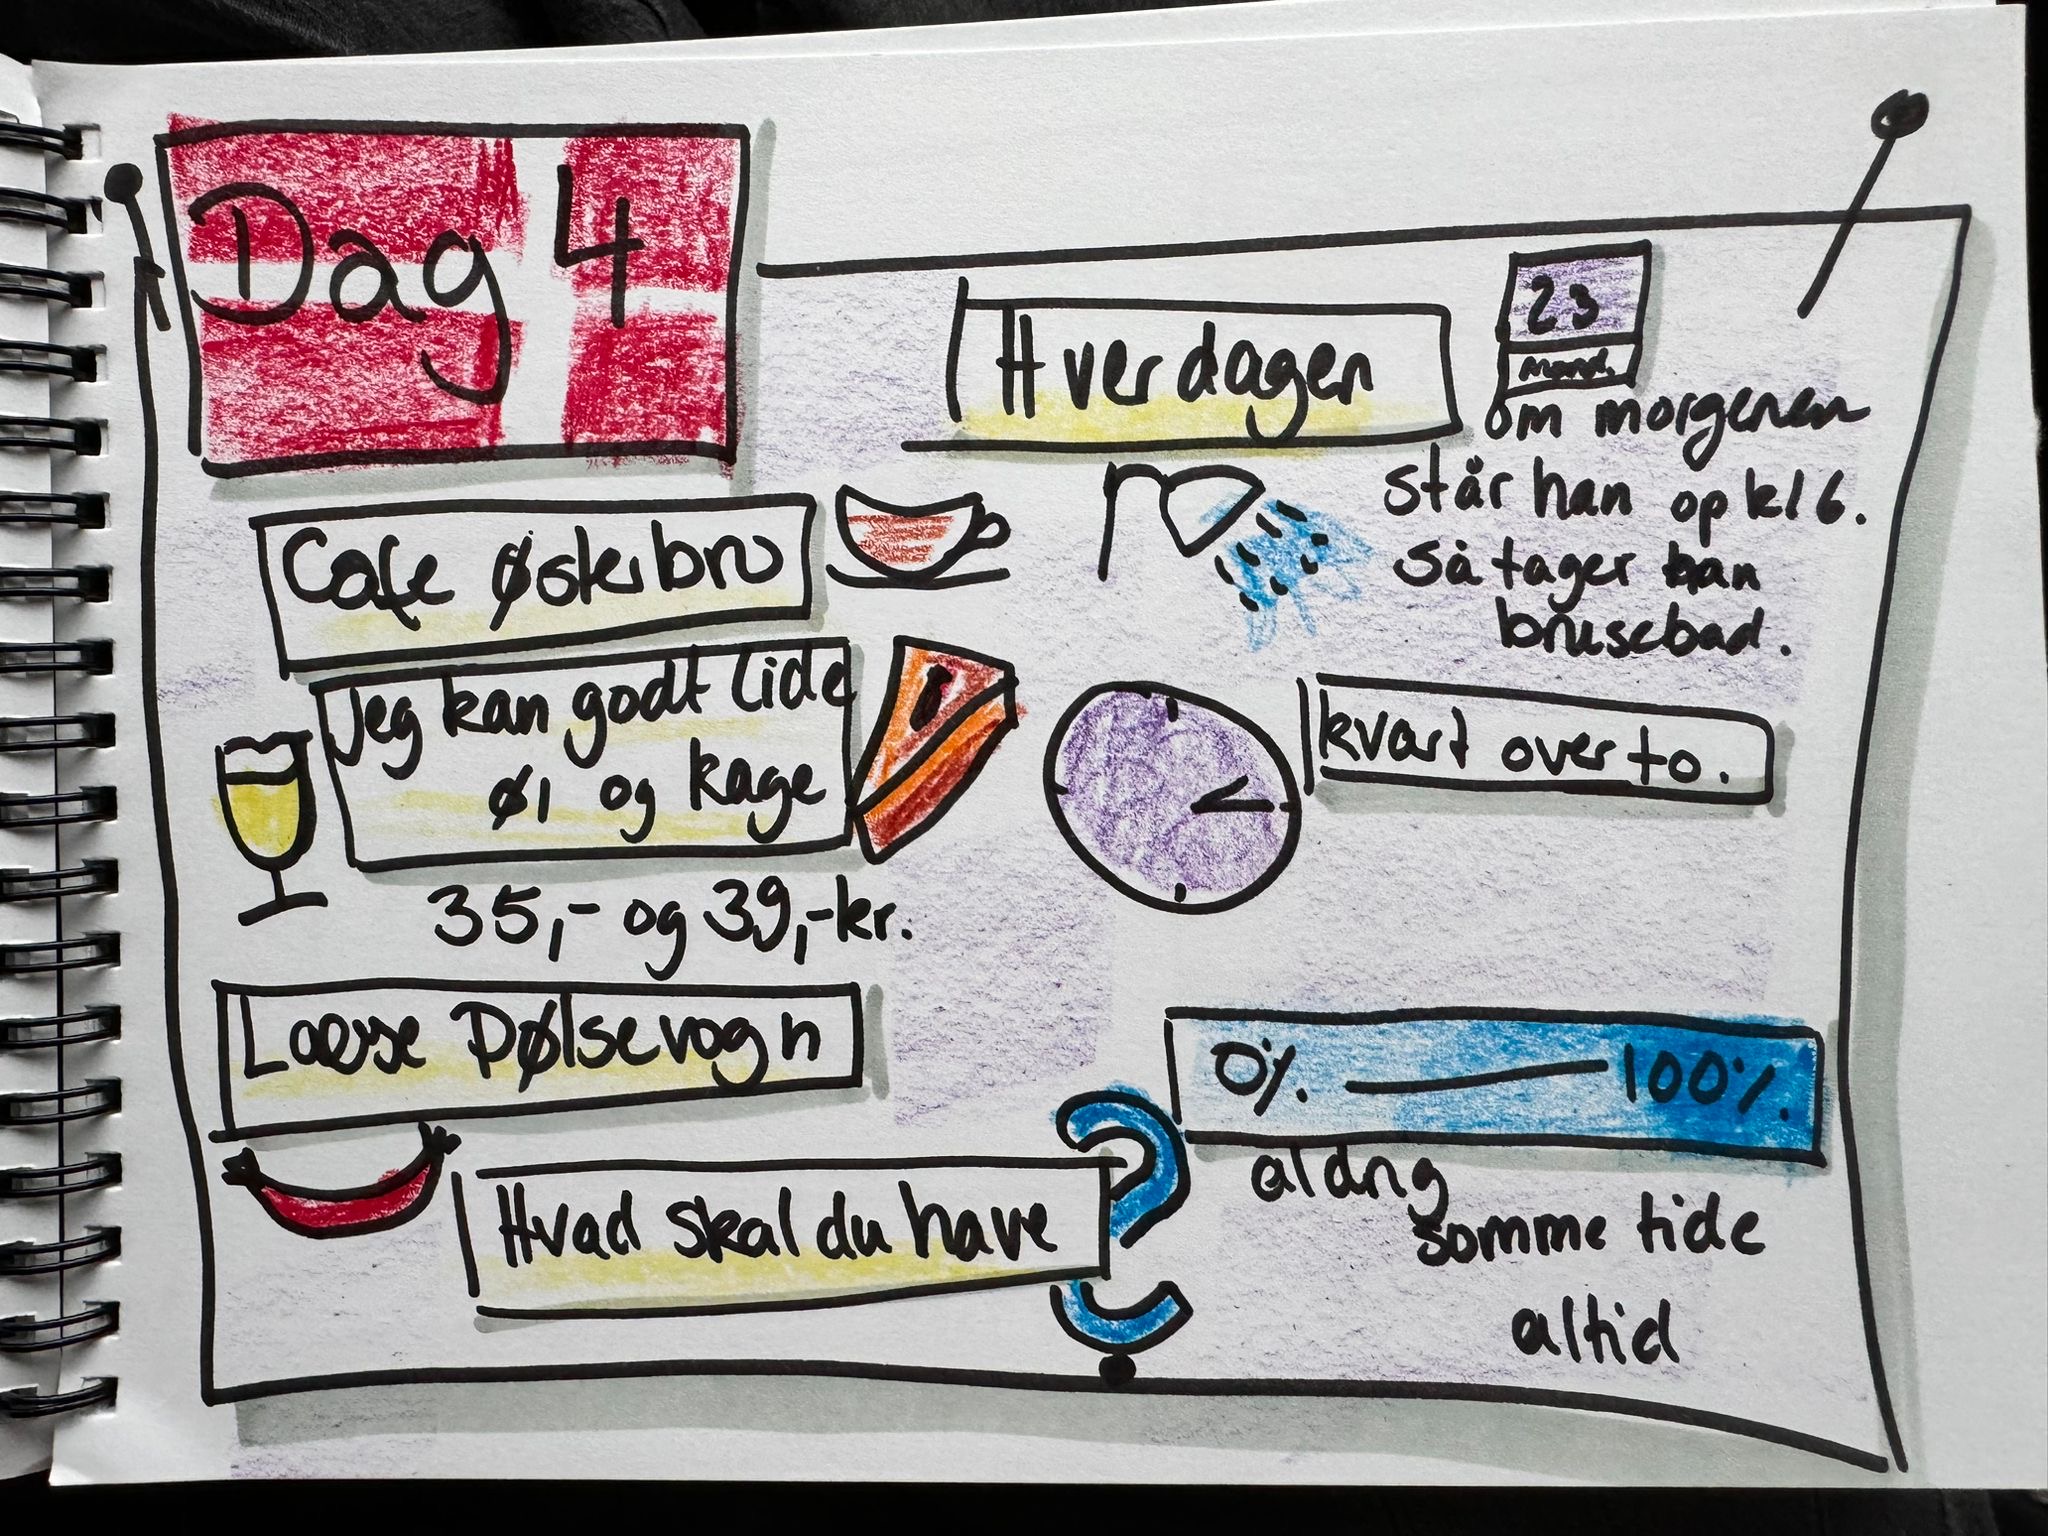 Dag 4
Cafe Østerbro
Jeg kan godt lide
øl og kage
35,- og 39,-kr.
Lasse Pølsevogn
Hvad skal du have
Hverdagen
23
mand.
om morgenen
står han op kl 6.
så tager han
brusebad.
kvart over to.
0% — 100%
aldrig
somme tide
altid